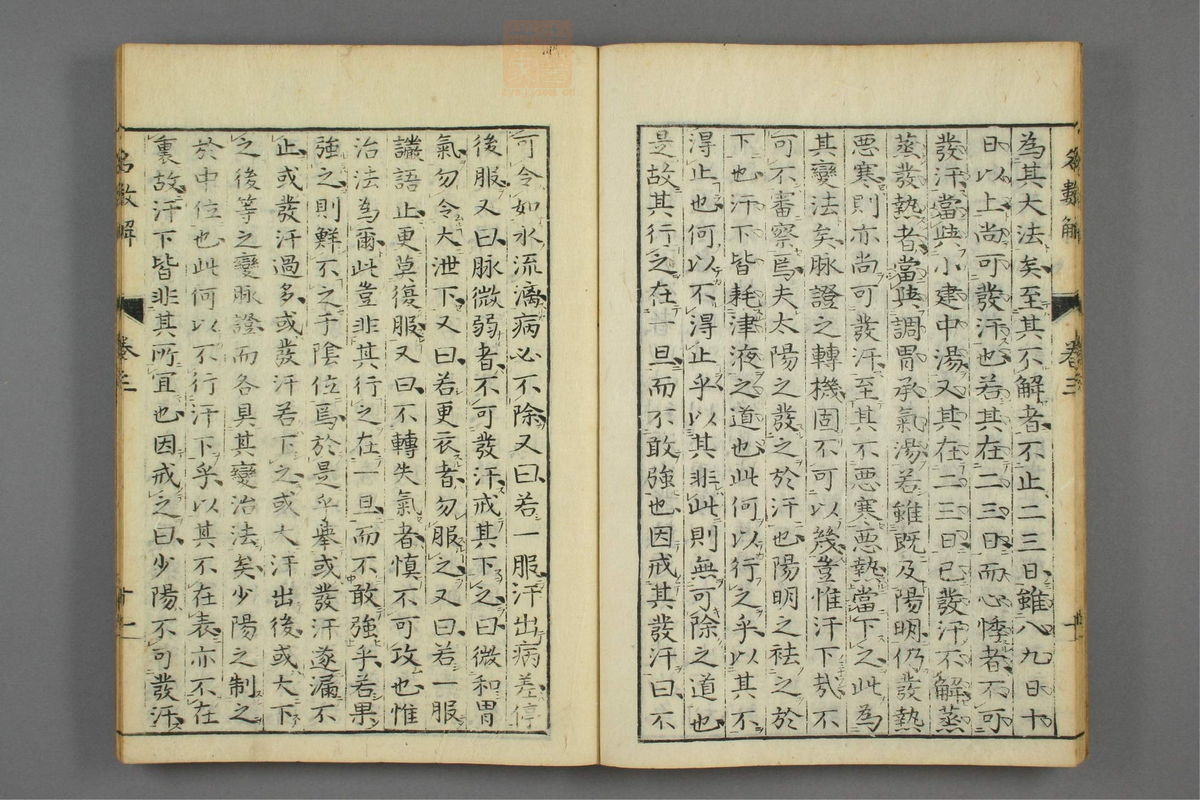 為其大法矣至其不解者不止二三日雖八九日十
日以上尚可發汗也若其在二三日而心悸者不可
發汗當與小建中湯又其在二三日已發汗不解蒸
蒸發熱者當與調胃承氣湯若雖既及陽明仍發熱
惡寒則亦尚可發汗至其不惡寒惡熱當下之此為
其變法矣脉證之轉機固不可以幾豈惟汗下㦲不
可不審察焉夫太陽之發之於汗也陽明之袪之於
下也汗下皆耗津液之道也此何以行之乎以其不
得止也何以不得止乎以其非此則無可除之道也
是故其行之在一旦而不敢強也因戒其發汗曰不
可令如水流漓病必不除又曰若一服汗出病差停
後服又曰脉微弱者不可發汗戒其下之曰微和胃
氣勿令大泄下又曰若更衣者勿服之又曰若一服
讝語止更莫復服又曰不轉失氣者慎不可攻也惟
治法為爾此豈非其行之在一旦而不敢強乎若果
強之則鮮不之于陰位焉於是乎舉或發汗遂漏不
止或發汗過多或發汗若下之或大汗出後或大下
之後等之變脉證而各具其變治法矣少陽之制之
於中位也此何以不行汗下乎以其不在表亦不在
裏故汗下皆非其所宜也因戒之曰少陽不可發汗
名數解
卷三
十一